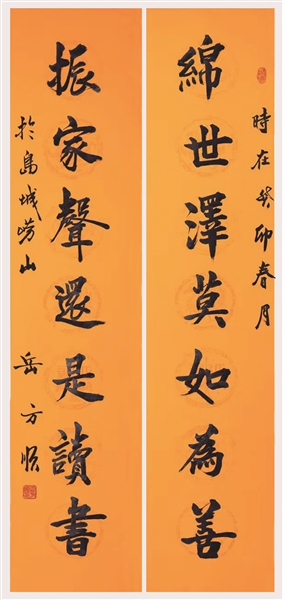 時在癸卯春月
綿世澤莫如為善
振家聲還是讀書
於島城嶗山
岳方順